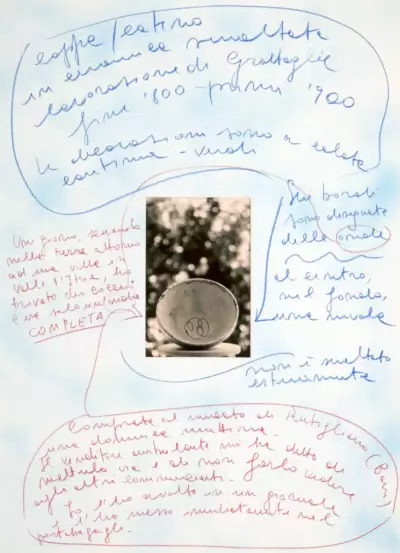 coppa/catino
in ceramica smaltata
lavorazione di Grottaglie
fine '800 - primi '900
le decorazioni sono a colate
continua - verdi
Sui bordi
sono disegnate
delle onde
al centro,
nel fondo,
una nuvola
non è smaltato
esternamente
Un giorno,
nella terra attorno
ad una villa in
valle d'Itria, ho
trovato dei cocci
e una sola
COMPLETA
Comprata al mercato di Rutigliano (Bari)
una domenica mattina.
Il venditore ambulante mi ha detto di
metterla via e di non farlo vedere
agli altri commercianti.
Io l'ho avvolto in un giornale
e l'ho messo immediatamente nel
portabagagli.